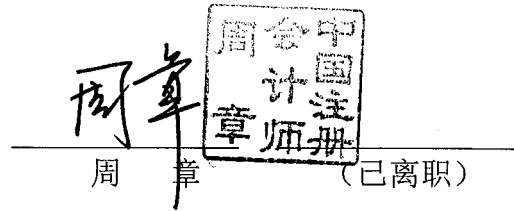 周章
中国注册
会计师
周章
周 章 （已离职）